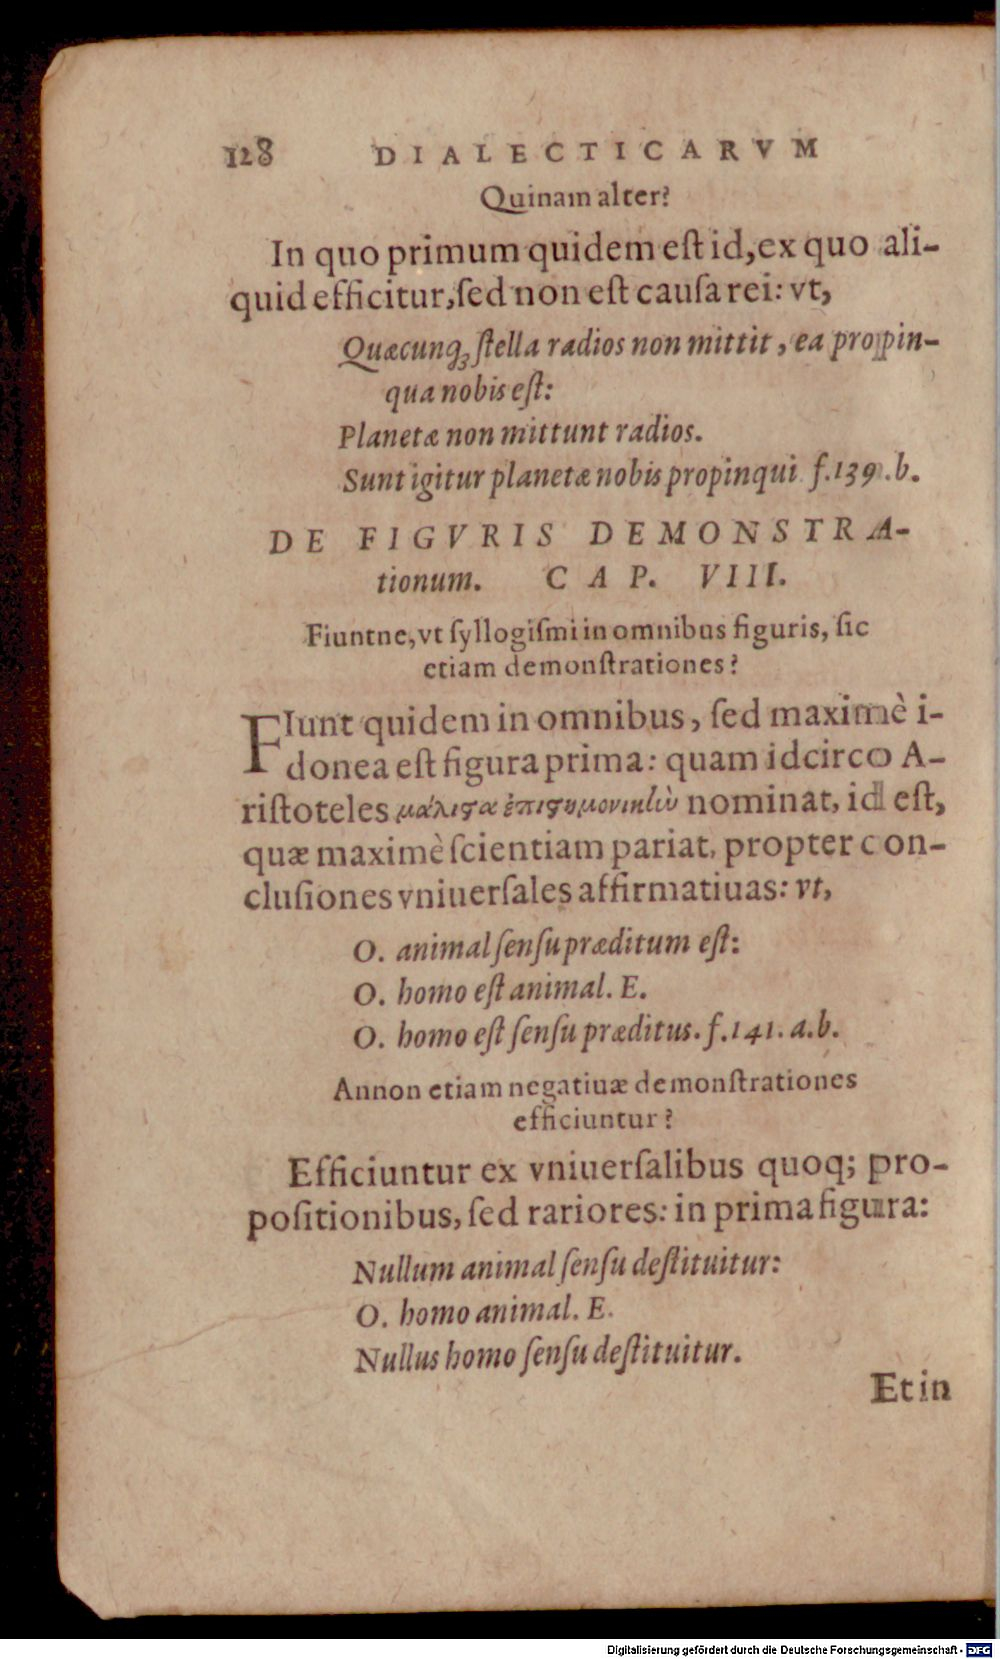 128 DIALECTICARVM
Quinam alter?
In quo primum quidem eſt id, ex quo ali-
quid efficitur, ſed non eſt cauſa rei: vt,
Quæcunqꝫ ſtella radios non mittit, ea propin-
qua nobis eſt:
Planetæ non mittunt radios.
Sunt igitur planetæ nobis propinqui f.139.b.
DE FIGVRIS DEMONSTRA-
tionum. CAP. VIII.
Fiuntne, vt ſyllogiſmi in omnibus figuris, ſic
etiam demonſtrationes?
FIunt quidem in omnibus, ſed maximè i-
donea eſt figura prima: quam idcirco A-
riſtoteles μάλιϛα ἐπιϛημονικὴν nominat, id eſt,
quæ maximè ſcientiam pariat, propter con-
cluſiones vniuerſales affirmatiuas: vt,
O. animal ſenſu præditum eſt:
O. homo eſt animal. E.
O. homo eſt ſenſu præditus. f.141. a.b.
Annon etiam negatiuæ demonſtrationes
efficiuntur?
Efficiuntur ex vniuerſalibus quoq; pro-
poſitionibus, ſed rariores: in prima figura:
Nullum animal ſenſu deſtituitur:
O. homo animal. E.
Nullus homo ſenſu deſtituitur.
Et in
Digitalisierung gefördert durch die Deutsche Forschungsgemeinschaft - DFG